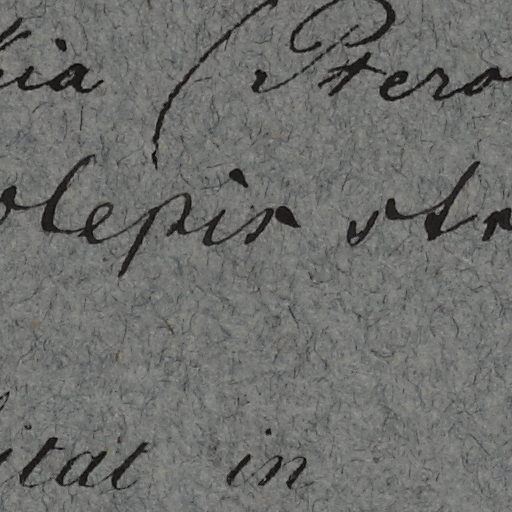 kia (Ptero
olepis str
itat in